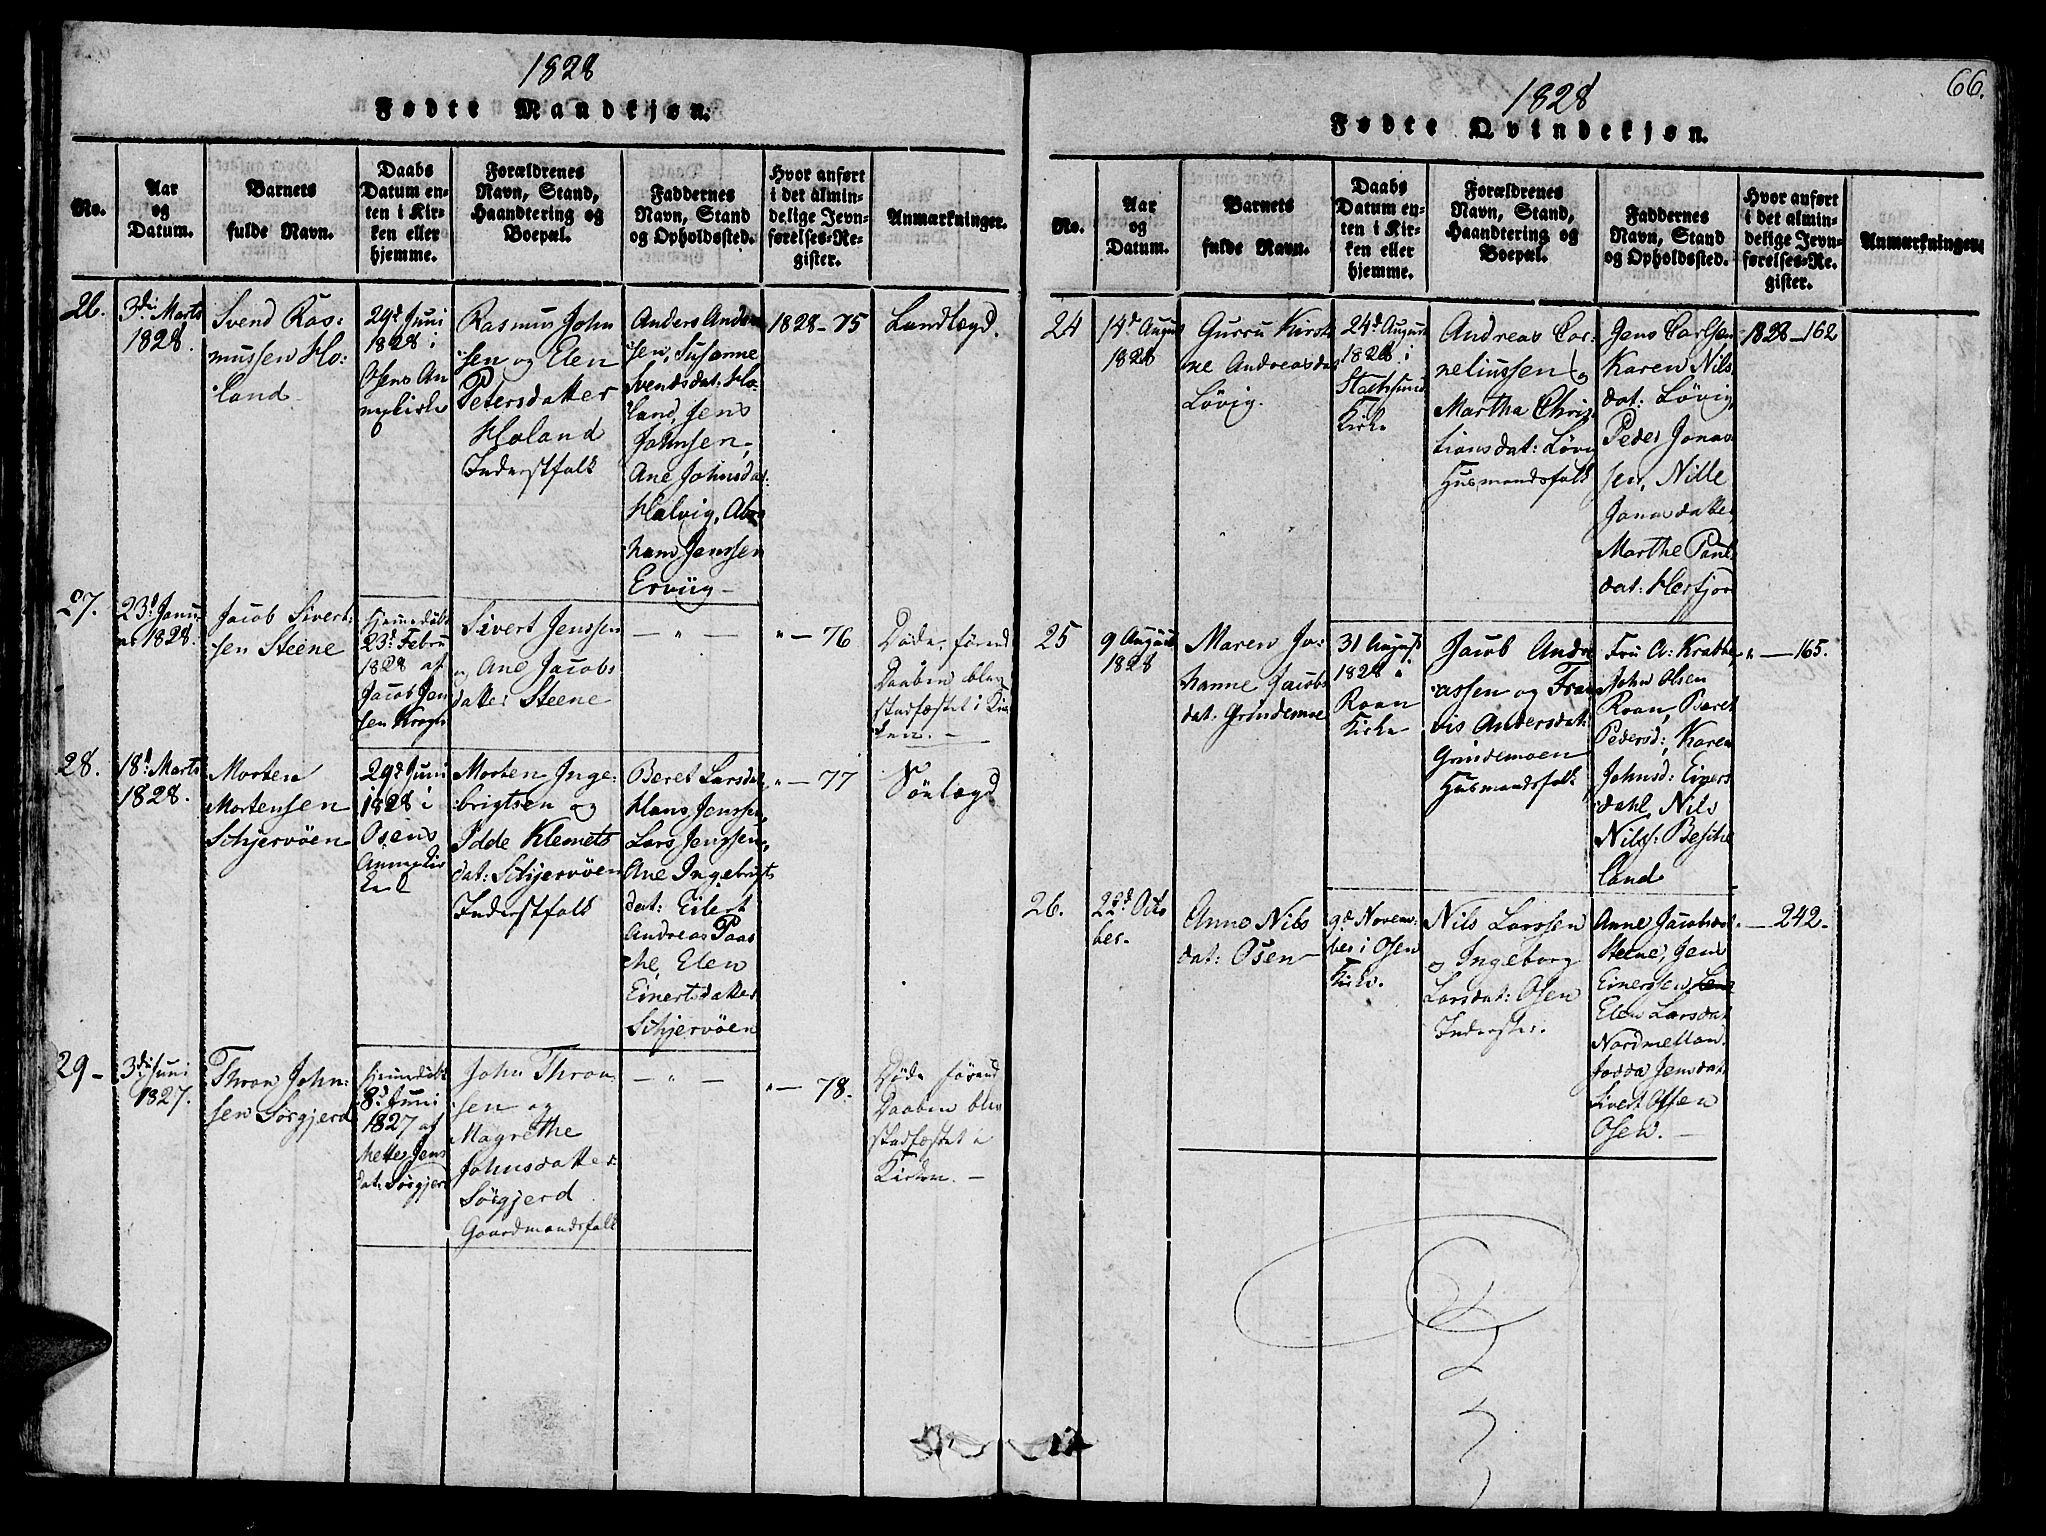 1828
Fødte Mandkjøn.
No.
Aar
og
Datum.
Barnets
fulde Navn.
Daabs
Datum en-
ten i Kir-
ken eller
hjemme.
Forældrenes
Navn, Stand,
Haandtering og
Boepæl.
Faddernes
Navn, Stand
og Opholdssted.
Hvor anført
i det almin-
delige Jevn-
førelses-Re-
gister.
Anmærkninger.
26.
3di Marts
1828.
Svend Ras:
mussen Ho:
land
29d Juni
1828 i
Osens An
nexkirke
Rasmus John
sen og Elen
Petersdatter
Holand
Inderstfolk
Anders Ander
sen, Susanne
Svendsdat: Ho:
land, Jens
Johnsen,
Ane Johnsdat:
Halvig, Abra
ham Jenssen
Erviig
1828-75
Landlægd.
27.
23d Janu
ar 1828.
Jacob Sivert:
sen Steene
Hjemedøbt
23d Febru
1828 af
Jacob Jen
sen Krogn
Sivert Jenssen
og Ane Jacobs
datter Steene
— " —
" — 76
Døde førend
Daaben blev
stadfæstet i Kir
ken. —
28.
18d Marts
1828.
Morten
Mortensen
Schjervöen
29d Juni
1828 i
Osens
Annexkir
ke
Morten Inge:
brigtsen og
Idde Klemets
dat: Schjervöen
Inderstfolk
Beret Larsdat,
Hans Jenssen,
Lars Jenssen,
Ane Ingebrigts
dat: Eilert
Andreas Paas
che, Elen
Einertsdatter
Schjervöen
" — 77
Sölægd
29 -
3di Juni
1827.
Thron John:
sen Sörgjerd
Hjemedøbt
8d Juni
1827 af
Mette Jens
dat: Sörgjerd
John Thron
sen og
Magrethe
Johnsdatter
Sörgjerd
Gaardmandsfolk
— " —
" — 78.
Døde førend
Daaben blev
stadfæstet i
Kirken. —
66.
1828
Fødte Qvindekjøn.
No.
Aar
og
Datum.
Barnets
fulde Navn.
Daabs
Datum en-
ten i Kir-
ken eller
hjemme.
Forældrenes
Navn, Stand,
Haandtering og
Boepæl.
Faddernes
Navn, Stand
og Opholdssted.
Hvor anført
i det almin-
delige Jevn-
førelses-Re-
gister.
Anmærkninger.
24
14d August
1828
Gurru Kirsti
ne Andreasdat
Lövig.
24d August
1828 i
Stoksund
Kirke
Andreas Cor:
neliussen og
Martha Chris
tiansdat: Lövig
Husmandsfolk
Jens Carlsen
Karen Nils
dat: Lövig,
Peder Jonas
sen, Nille
Jonasdatter,
Marthe Pauls
dat: Herfjor
1828-162
25
9 August
1828
Maren Jo:
hanne Jacobs
dat: Grindemoe
31 August
1828 i
Roan
Kirke
Jacob Andre
assen og Fran
cis Andersdat:
Grindemoen
Husmandsfolk
Fru A: Krabbe
John Olsen
Roan, Beret
Pedersd:, Karen
Johnsd: Eipers
dahl, Nils
Nilss: Beschе
land
" — 165.
26.
22d Octo
ber.
Anne Nils
dat: Osen
9d Novem:
ber i Osen
Kirke.
Nils Larssen
og Ingeborg
Larsdat: Osen
Inderster.
Anne Jacobsdat
Steene, Jens
Einerssen
Elen Larsdat
Nordmelland
Jensdat
Sivert Olsen
Osen. —
" — 242.